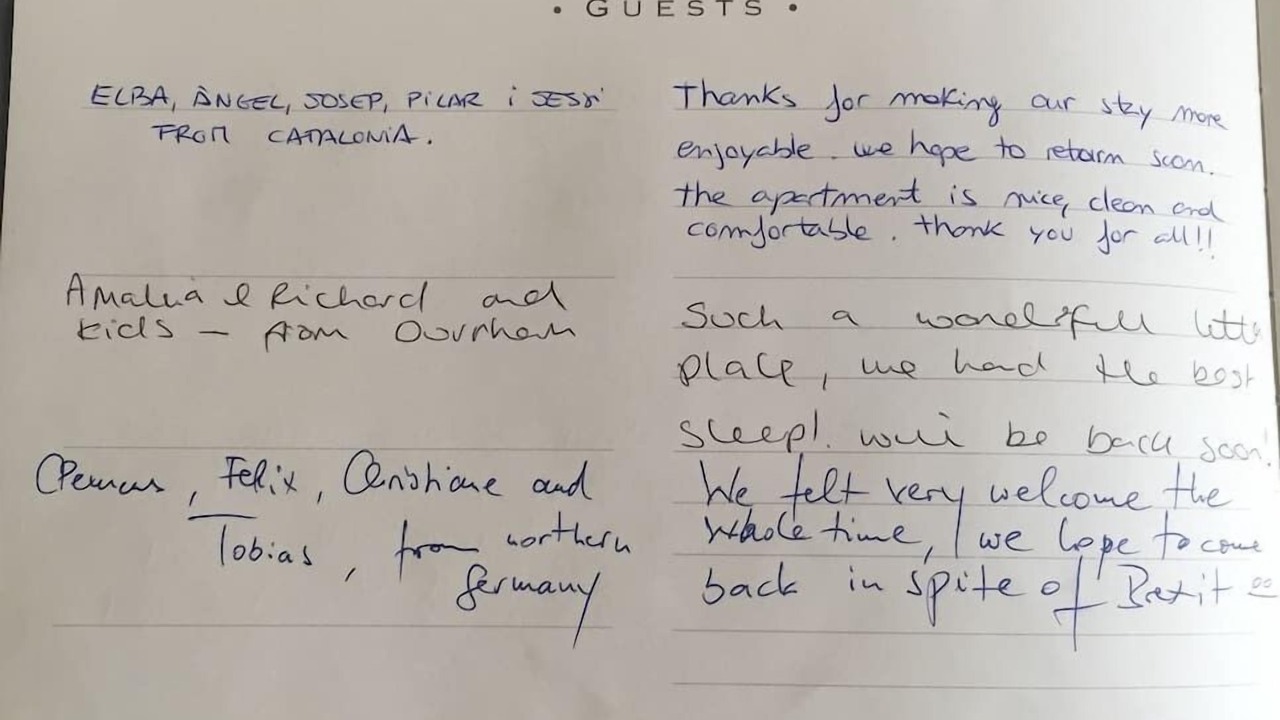 • GUESTS •
ELBA, ÀNGEL, JOSEP, PILAR i JESSI
FROM CATALONIA.
Thanks for making our stay more
enjoyable. we hope to return soon.
the apartment is nice, clean and
comfortable. thank you for all!!
Amalia & Richard and
kids - from Durham
Such a wonderful little
place, we had the best
sleep!. will be back soon!
, Felix, Christiane and
Tobias, from northern
Germany
We felt very welcome the
whole time, we hope to come
back in spite of Brexit